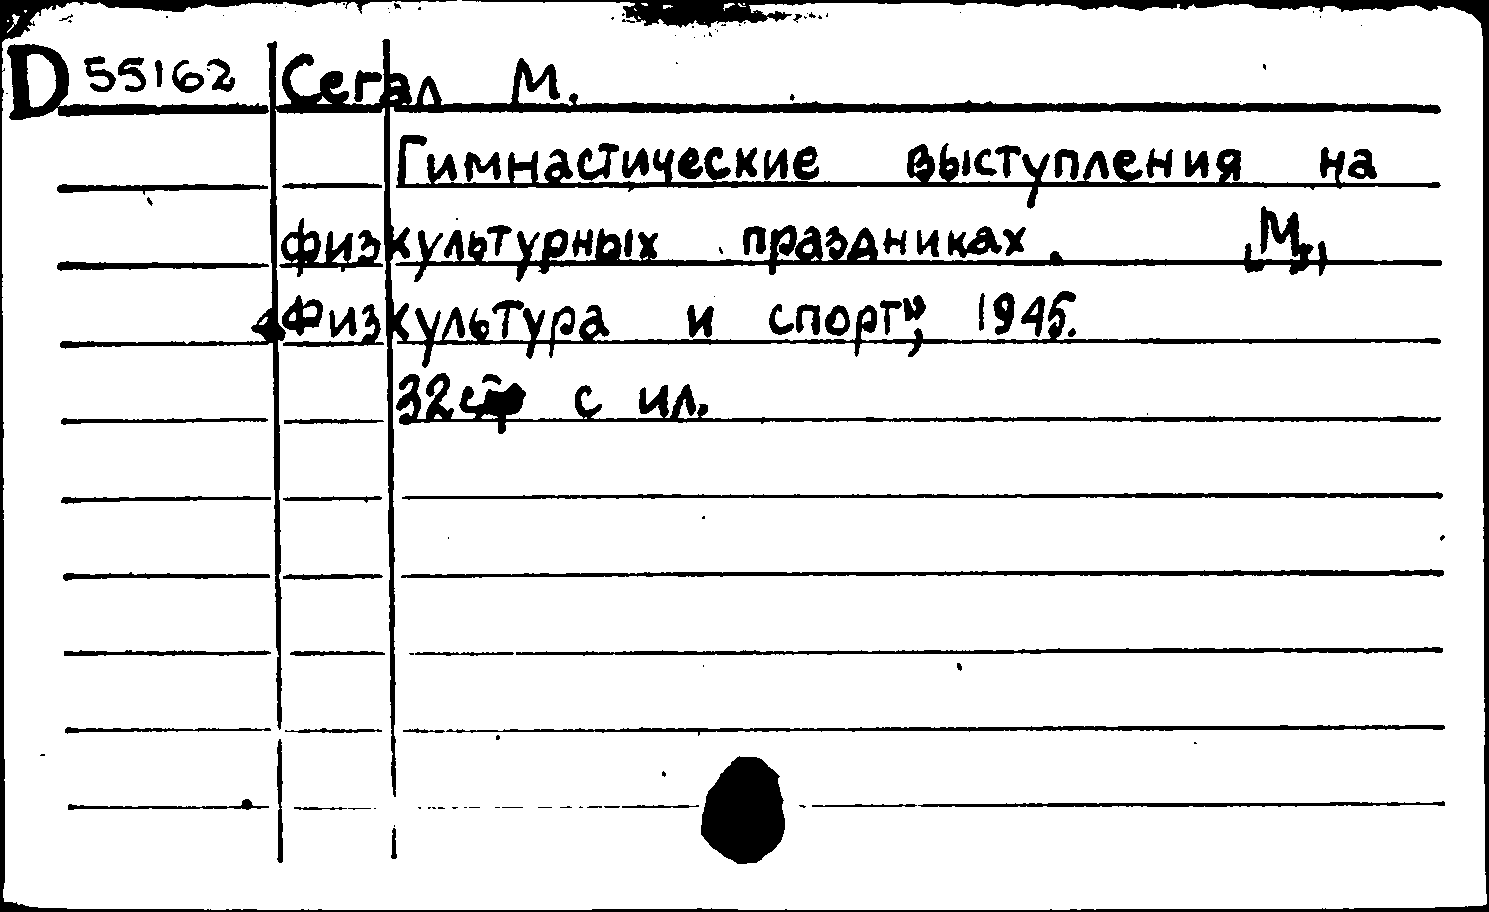 D 55162 Сегал М.
Гимнастические выступления на
физкультурных праздниках. М.,
"Физкультура и спорт", 1945.
32 стр с ил.